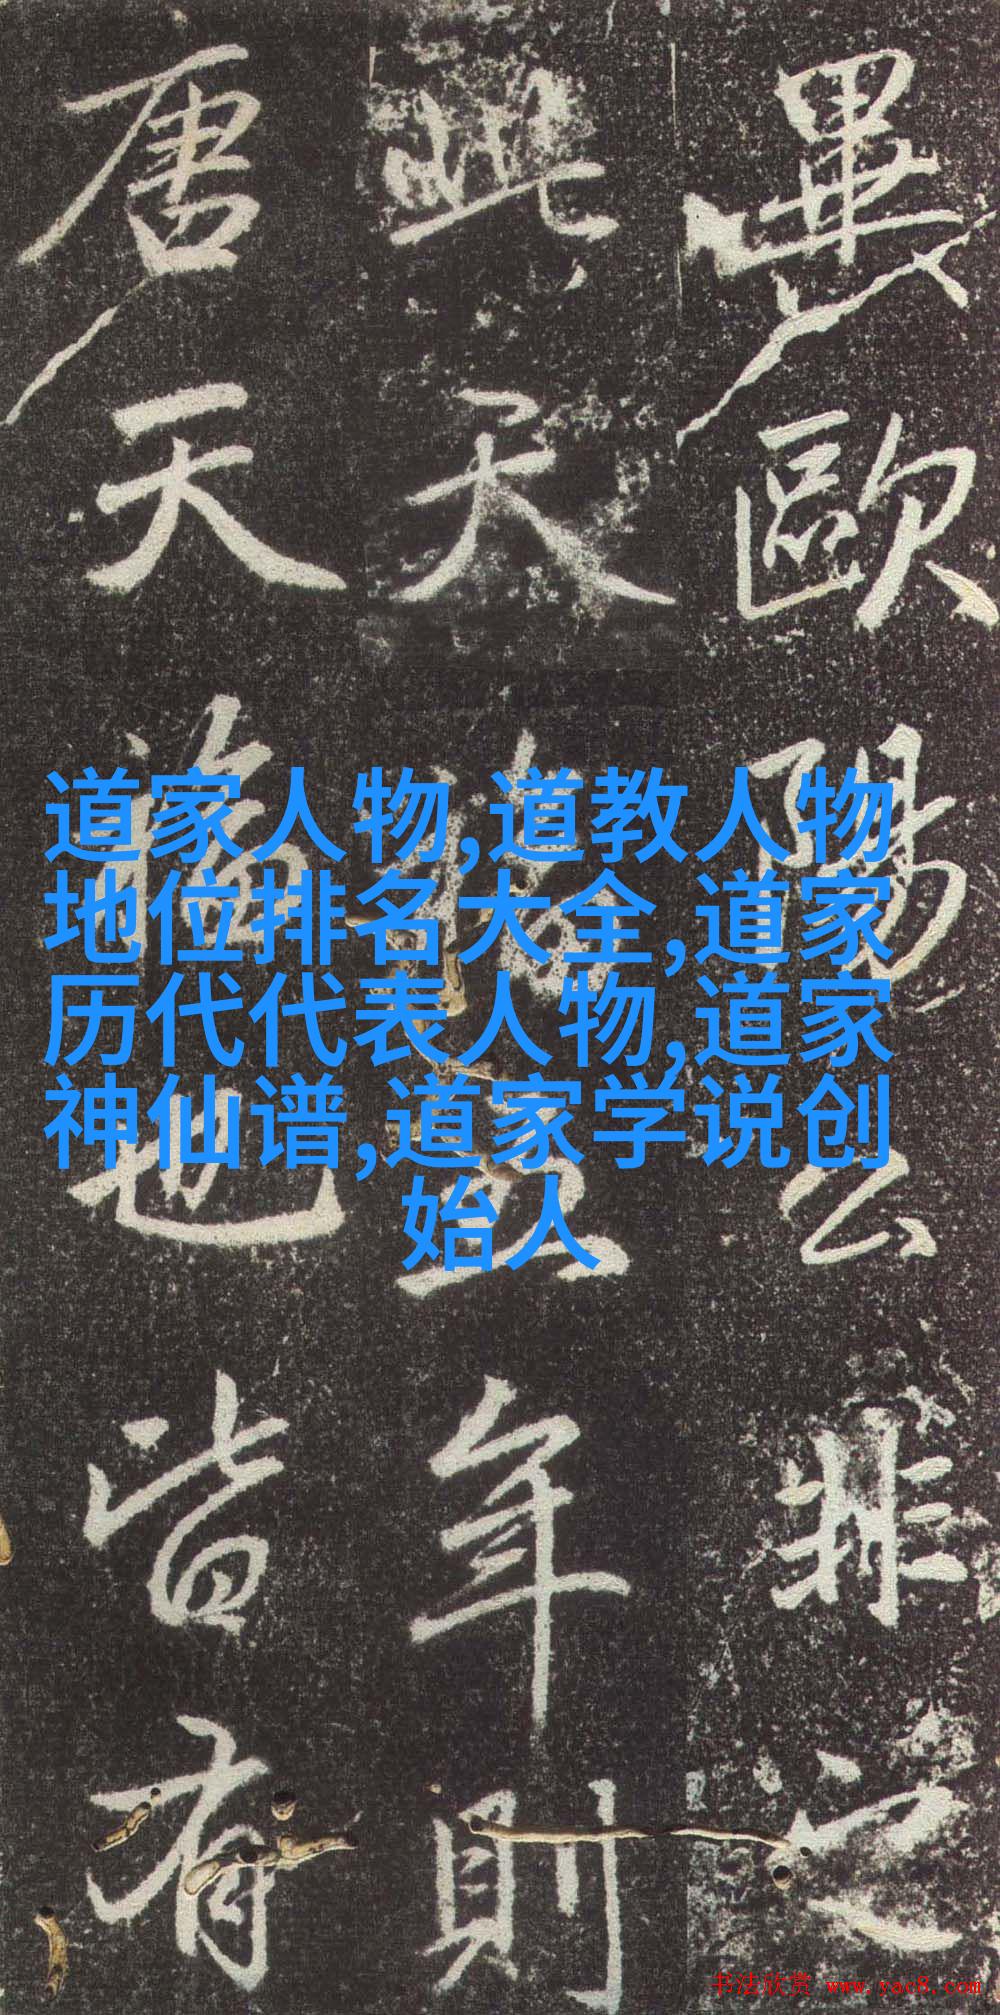 道家人物,道教人物
地位排名大全,道家
历代代表人物,道家
神仙谱,道家学说创
始人
歐陽公非之
此天五年則
唐天也皆有
书法欣赏 www.yac8.com